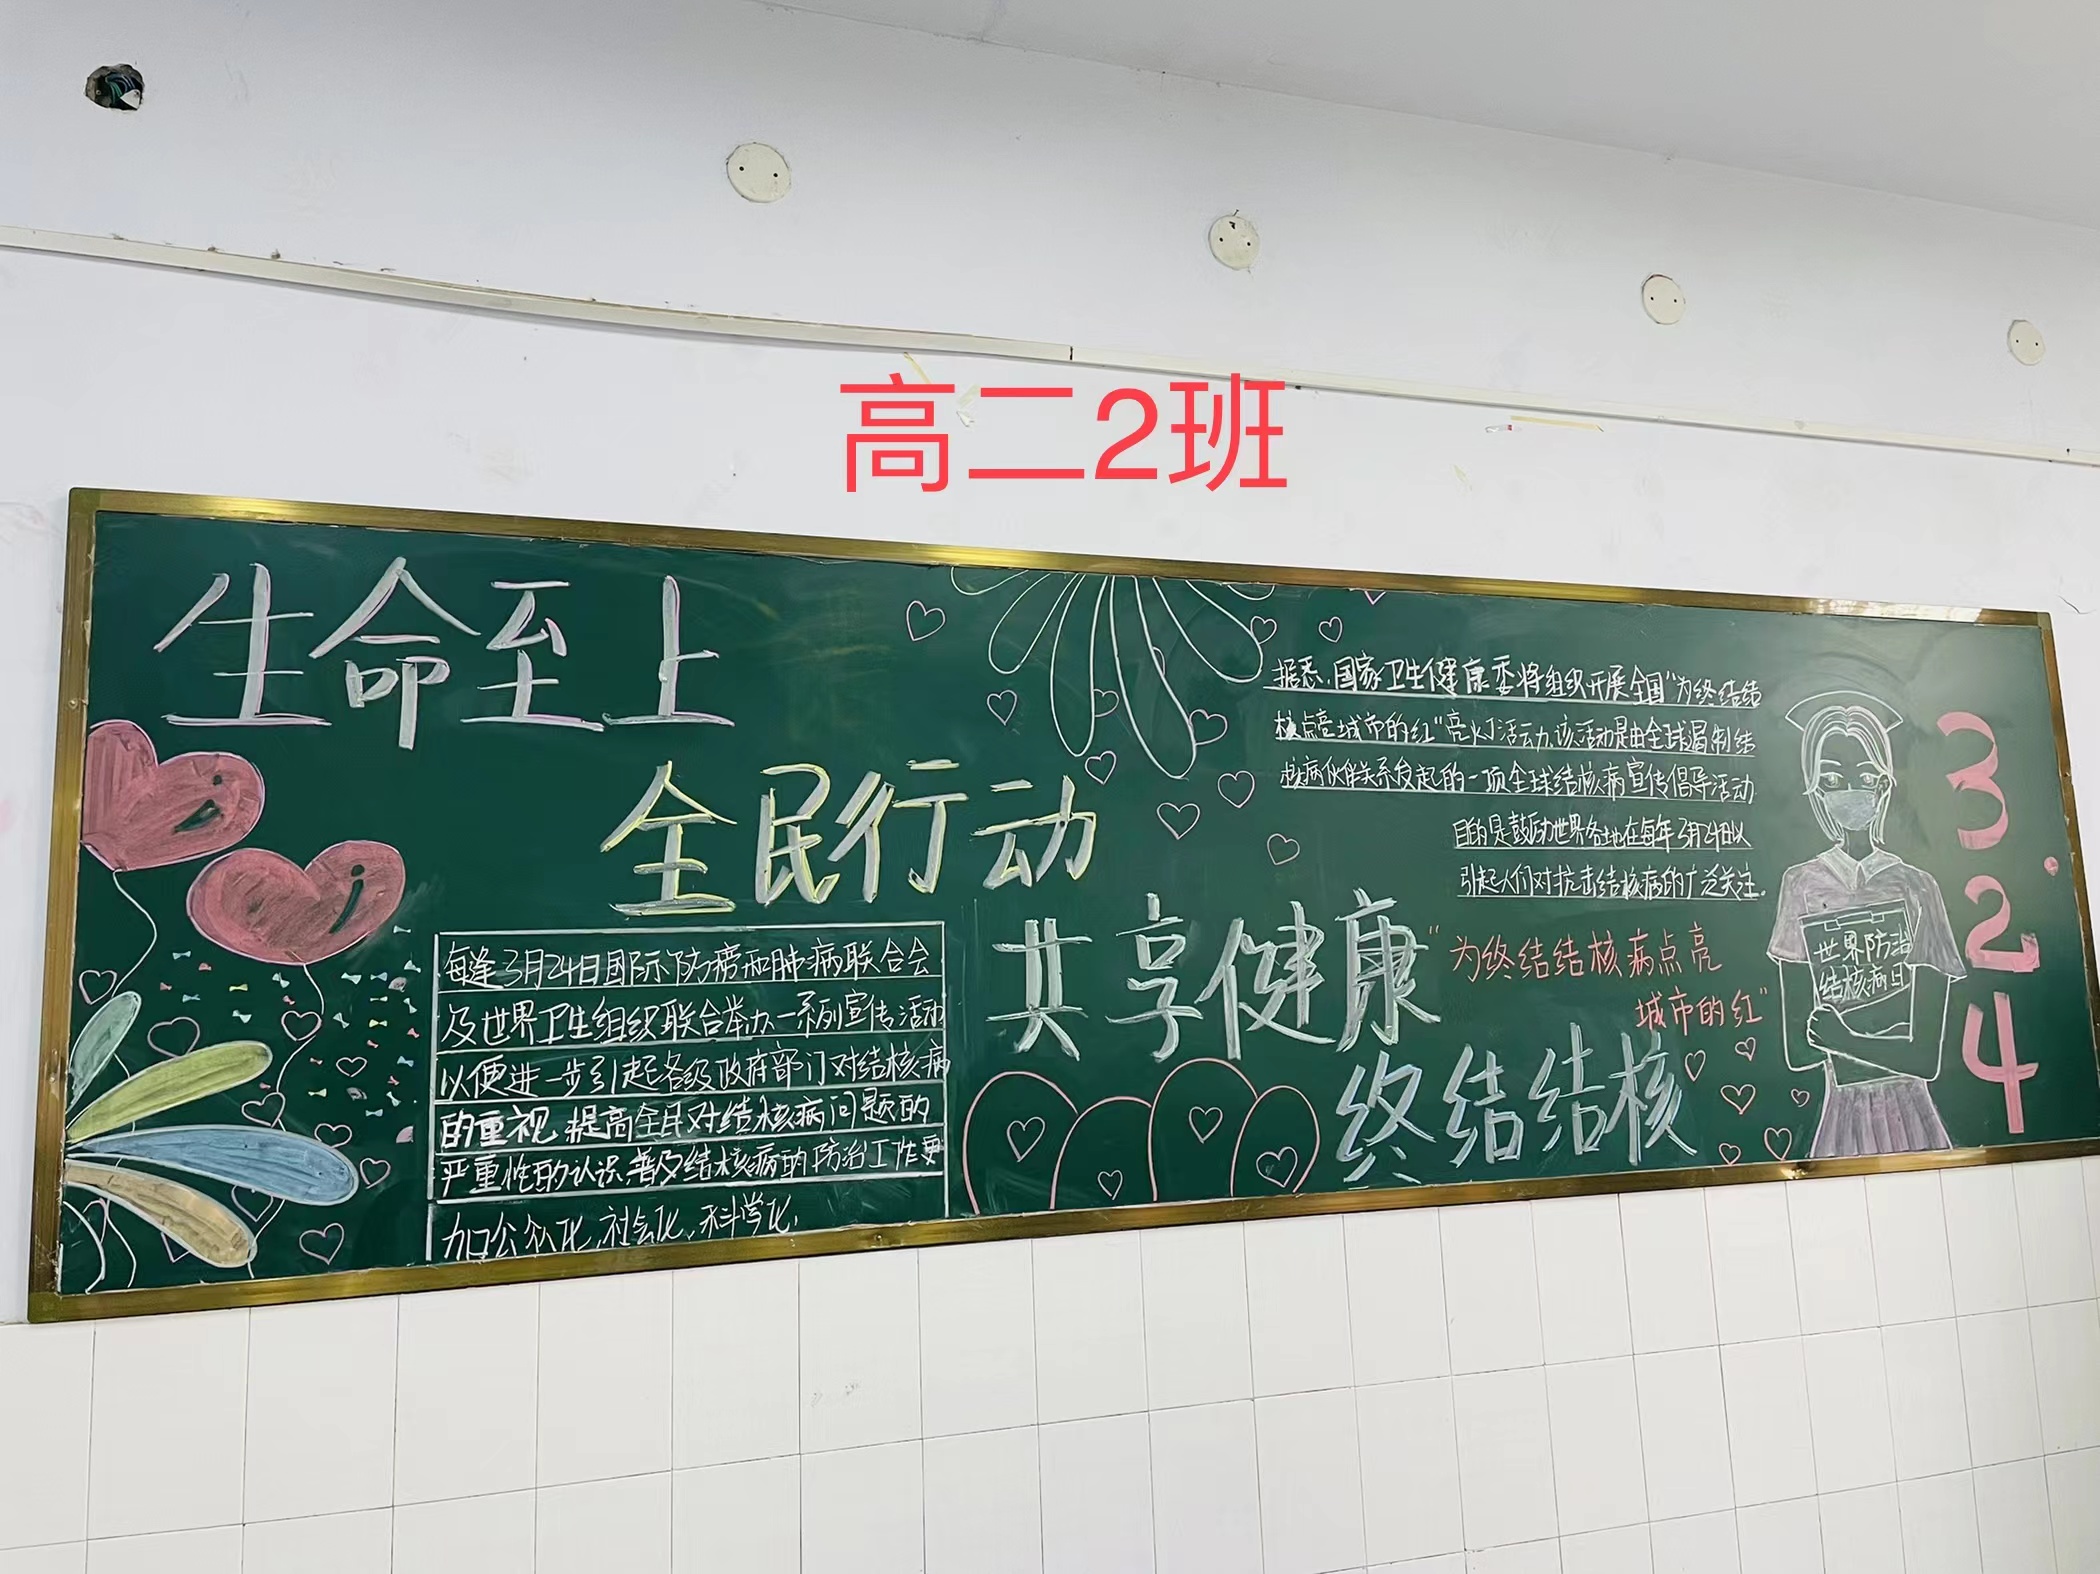 高二2班
生命至上
全民行动
共享健康
终结结核
每逢3月24日国际防痨和肺病联合会
及世界卫生组织联合举办一系列宣传活动
以便进一步引起各级政府部门对结核病
的重视,提高全民对结核病问题的
严重性的认识,普及结核病的防治工作更
加公众化,社会化,科学化,
据悉,国家卫生健康委将组织开展全国“为终结结
核点亮城市的红”亮灯活动,该活动是由全球遏制结
核病伙伴关系发起的一项全球结核病宣传倡导活动
目的是鼓动世界各地在每年3月24日以
引起人们对抗击结核病的广泛关注。
“为终结结核病点亮
城市的红”
世界防治
结核病日
3.24